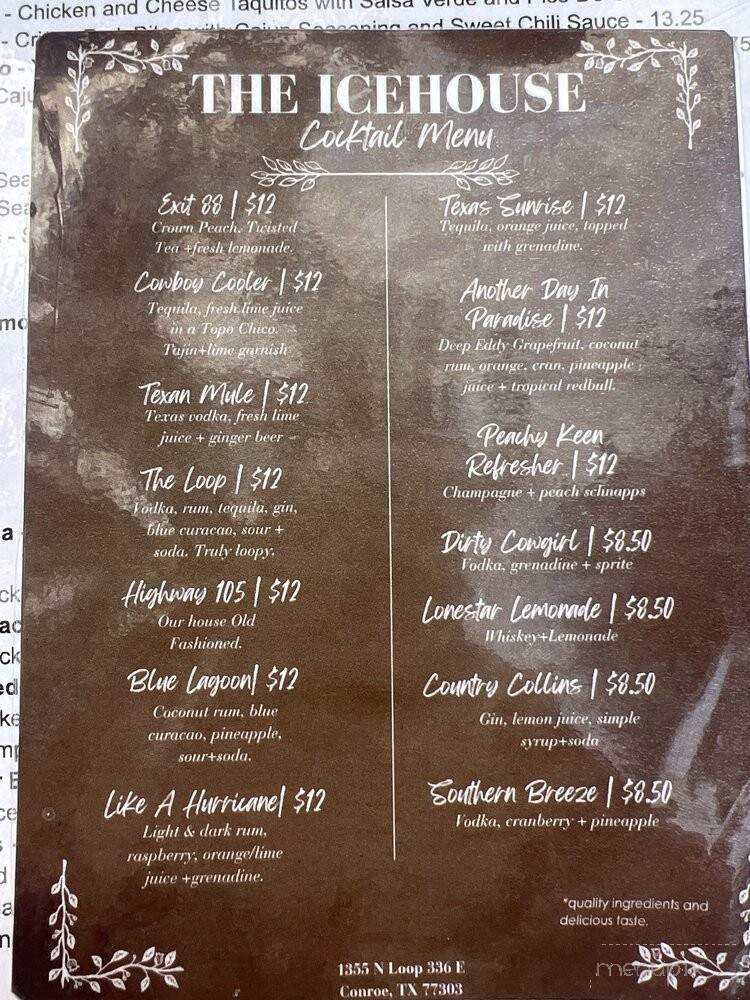 - Chicken and Cheese Taquitos with Salsa Verde and
and Sweet Chili Sauce - 13.25
THE ICEHOUSE
Cocktail Menu
Exit 88 | $12
Crown Peach, Twisted
Tea +fresh lemonade.
Cowboy Cooler | $12
Tequila, fresh lime juice
in a Topo Chico.
Tajin+lime garnish
Texan Mule | $12
Texas vodka, fresh lime
juice + ginger beer
The Loop | $12
Vodka, rum, tequila, gin,
blue curacao, sour +
soda. Truly loopy.
Highway 105 | $12
Our house Old
Fashioned.
Blue Lagoon| $12
Coconut rum, blue
curacao, pineapple,
sour+soda.
Like A Hurricane| $12
Light & dark rum,
raspberry, orange/lime
juice +grenadine.
Texas Sunrise | $12
Tequila, orange juice, topped
with grenadine.
Another Day In
Paradise | $12
Deep Eddy Grapefruit, coconut
rum, orange, cran, pineapple
juice + tropical redbull.
Peachy Keen
Refresher | $12
Champagne + peach schnapps
Dirty Cowgirl | $8.50
Vodka, grenadine + sprite
Lonestar Lemonade | $8.50
Whiskey+Lemonade
Country Collins | $8.50
Gin, lemon juice, simple
syrup+soda
Southern Breeze | $8.50
Vodka, cranberry + pineapple
*quality ingredients and
delicious taste.
1355 N Loop 336 E
Conroe, TX 77303